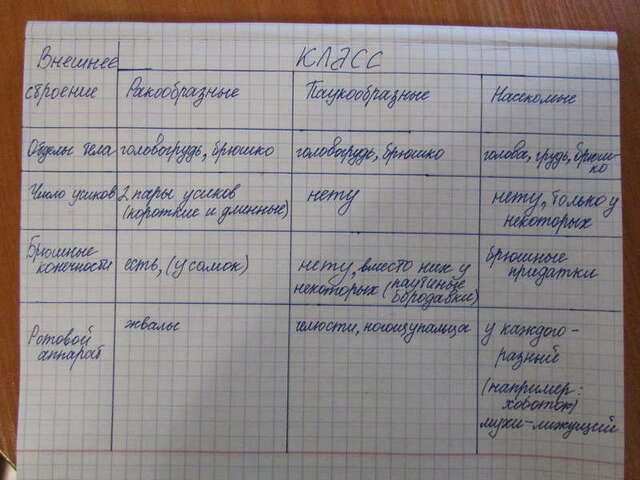 Внешнее строение
КЛАСС
Ракообразные
Паукообразные
Насекомые
Отделы тела
головогрудь, брюшко
головогрудь, брюшко
голова, грудь, брюш-
ко
Число усиков
2 пары усиков
(короткие и длинные)
нету
нету, только у
некоторых
Брюшные
конечности
есть, (у самок)
нету, вместо них у
некоторых (паутиные
бородавки)
брюшные
придатки
Ротовой
аппарат
жвалы
челюсти, ногощупальца
у каждого -
разный
(например:
хоботок)
мухи-лижущий